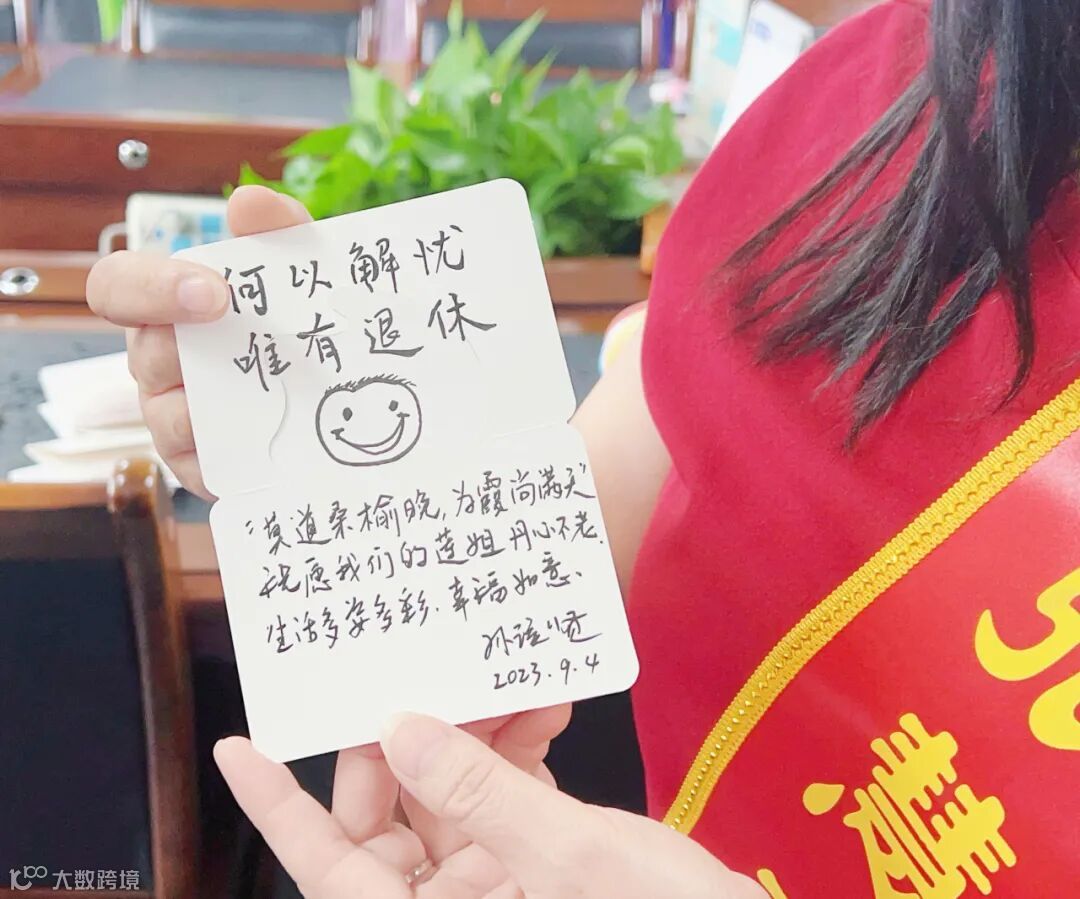 何以解忧
唯有退休
“莫道桑榆晚,为霞尚满天”
祝愿我们的莲姐丹心不老、
生活多姿多彩、幸福如意、
孙
2023.9.4
大数跨境